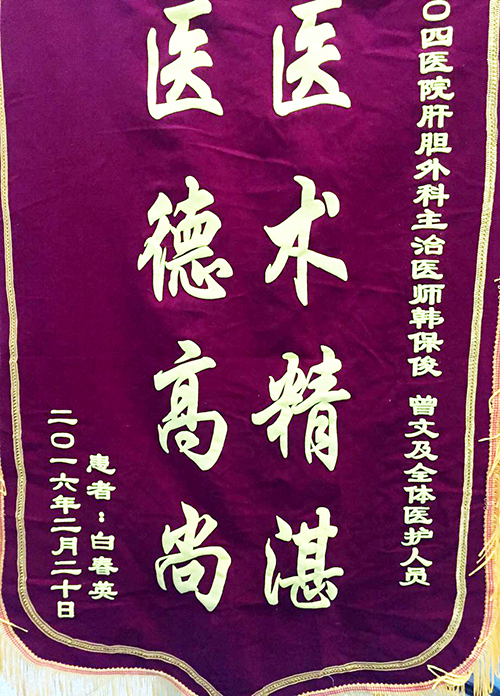 〇四医院肝胆外科主治医师韩保俊 曾文及全体医护人员
医术精湛
医德高尚
患者：白春英
二〇一六年二月二十日